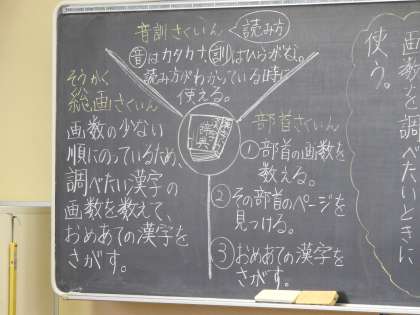 音訓さくいん
読み方
音はカタカナ、訓はひらがな。
読み方がわかっている時に
使える。
そうかく
総画さくいん
画数の少ない
順にのっているため、
調べたい漢字の
画数を数えて、
おめあての漢字を
さがす。
漢字
辞典
部首さくいん
①部首の画数を
数える。
②その部首のページを
見つける。
③おめあての漢字を
さがす。
画数を調べたいときに
使う。